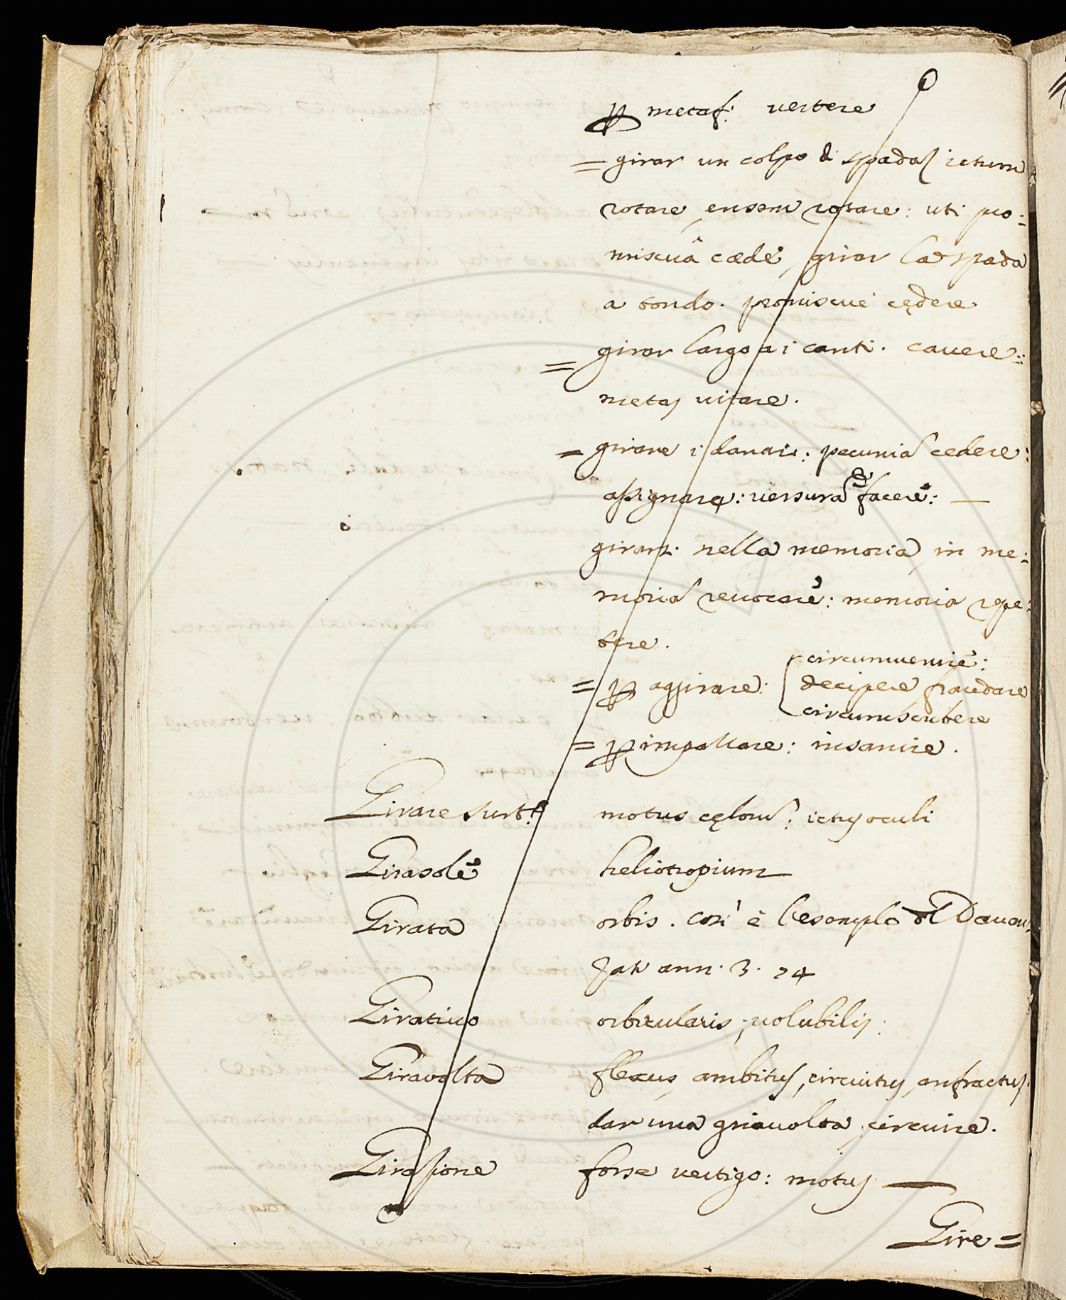 p metaf: vertere
= girar un colpo di spada, ictum
rotare, ensem rotare: uti pro:
miscuâ cæde, girar la spada
a tondo. promiscuè cędere
= girar largo ai canti. cavere:
metas vitare.
= girare i danari: pecunia cedere:
assignare: versura facere: —
girar nella memoria, in me:
moria revocare: memoria repe:
tere.
= p aggirare: circumvenire:
decipere, fraudare
circumscribere
= p impazzare: insanire.
Girare sust. motus cęlorum: ictus oculi
Girasole heliotropium
Girata orbis. così è l'esempio del Davan:
zati ann. 3. 74
Girativo orbicularis, volubilis:
Giravolta flexus, ambitus, circuitus, anfractus.
dar una giravolta, circuire.
Girazione forse vertigo: motus —
Gire =